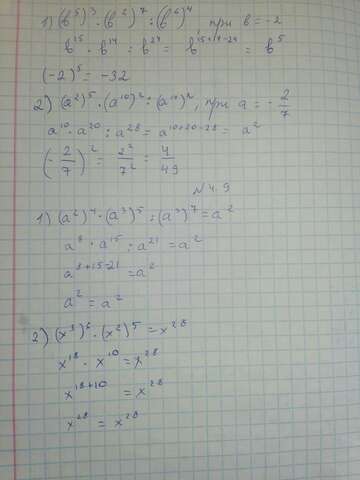 1) (b⁵)³ · (b²)⁷ : (b⁶)⁴ при b = -2
b¹⁵ · b¹⁴ : b²⁴ = b¹⁵⁺¹⁴⁻²⁴ = b⁵
(-2)⁵ = -32
2) (a²)⁵ · (a¹⁰)² : (a¹⁴)², при a = -2/7
a¹⁰ · a²⁰ : a²⁸ = a¹⁰⁺²⁰⁻²⁸ = a²
(-2/7)² = 2²/7² = 4/49
№4.9
1) (a²)⁴ · (a³)⁵ : (a³)⁷ = a²
a⁸ · a¹⁵ : a²¹ = a²
a⁸⁺¹⁵⁻²¹ = a²
a² = a²
2) (x³)⁶ · (x²)⁵ = x²⁸
x¹⁸ · x¹⁰ = x²⁸
x¹⁸⁺¹⁰ = x²⁸
x²⁸ = x²⁸